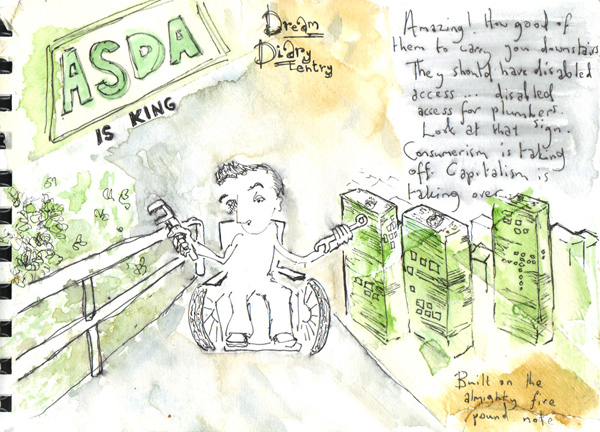 ASDA
IS KING
Dream
Diary
Entry
Amazing! How good of
them to carry you downstairs
They should have disabled
access... disabled
access for plumbers.
Look at that sign.
Consumerism is taking
off. Capitalism is
taking over...
Built on the
almighty five
pound note